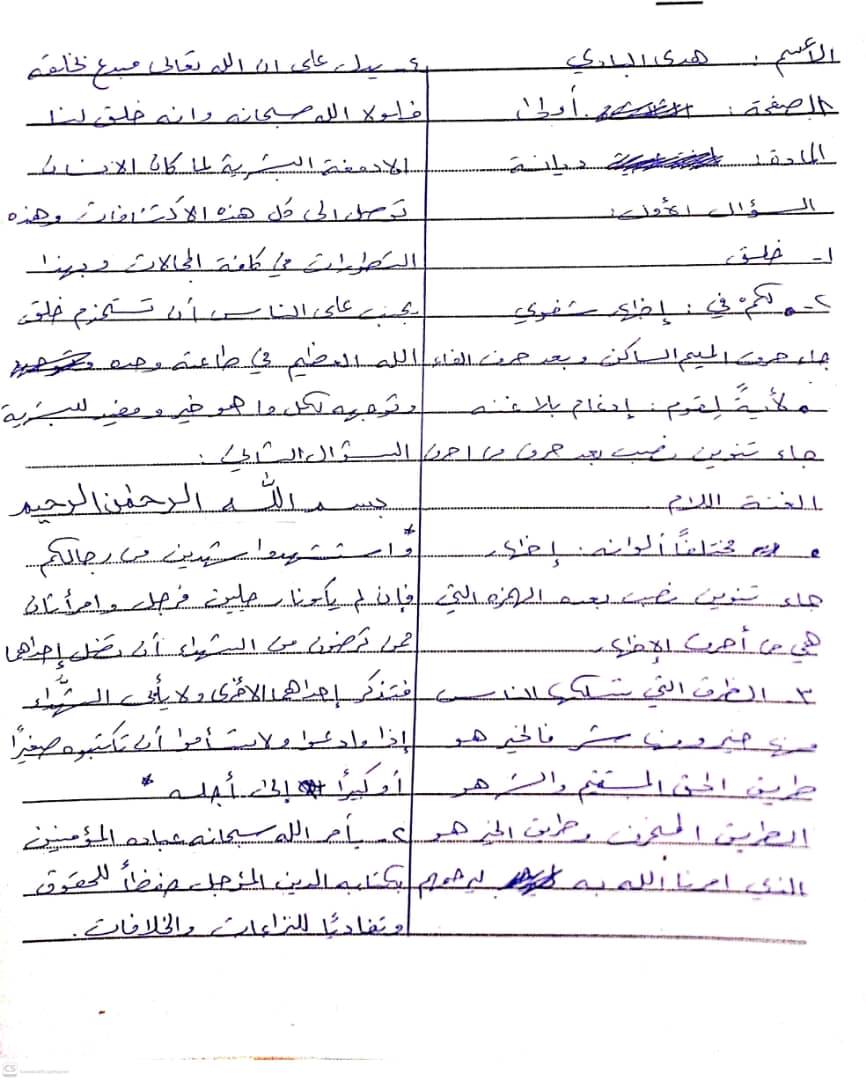 الأسم : هدى البادي
الصفحة : أولى
المادة : ديانة
السؤال الأول :
١- خلق
٢- • لكم في : إظهار شفوي
جاء حرف الميم الساكن وبعد حرف الفاء
• لأيةً لقوم : إدغام بلا غنة
جاء تنوين نصب بعد حرف من احرف
الغنة اللام
• مختلفاً ألوانه : إظهار
جاء تنوين نصب بعده الهمزه التي
هي من أحرف الإظهار
٣- الطرق التي يسلكها الناس
منها خير ومنها شر فالخير هو
طريق الحق المستقيم والشر هو
الطريق المنحرف وطريق الخير هو
الذي امرنا الله به
٤- يدل على ان الله تعالى مبدع بخلقه
فلولا الله سبحانه وانه خلق لنا
الادمغة البشرية لما كان الانسان
توصل الى كل هذه الاكتشافات وهذه
التطورات في كافة المجالات وبهذا
يجب على الناس أن تستخدم خلق
الله العظيم في طاعته وحده
وتوجيهه لكل ما هو خير ومفيد للبشرية
السؤال الثاني :
بسم الله الرحمن الرحيم
* واستشهدوا شهيدين من رجالكم
فإن لم يكونا رجلين فرجل وامرأتان
ممن ترضون من الشهداء أن تضل إحداهما
فتذكر إحداهما الأخرى ولا يأبى الشهداء
إذا ما دعوا ولا تسأموا أن تكتبوه صغيرًا
أو كبيرًا إلى أجله *
٢- يأمر الله سبحانه عباده المؤمنين
بكتابه الدين المؤجل حفظاً للحقوق
وتفاديًا للنزاعات والخلافات .